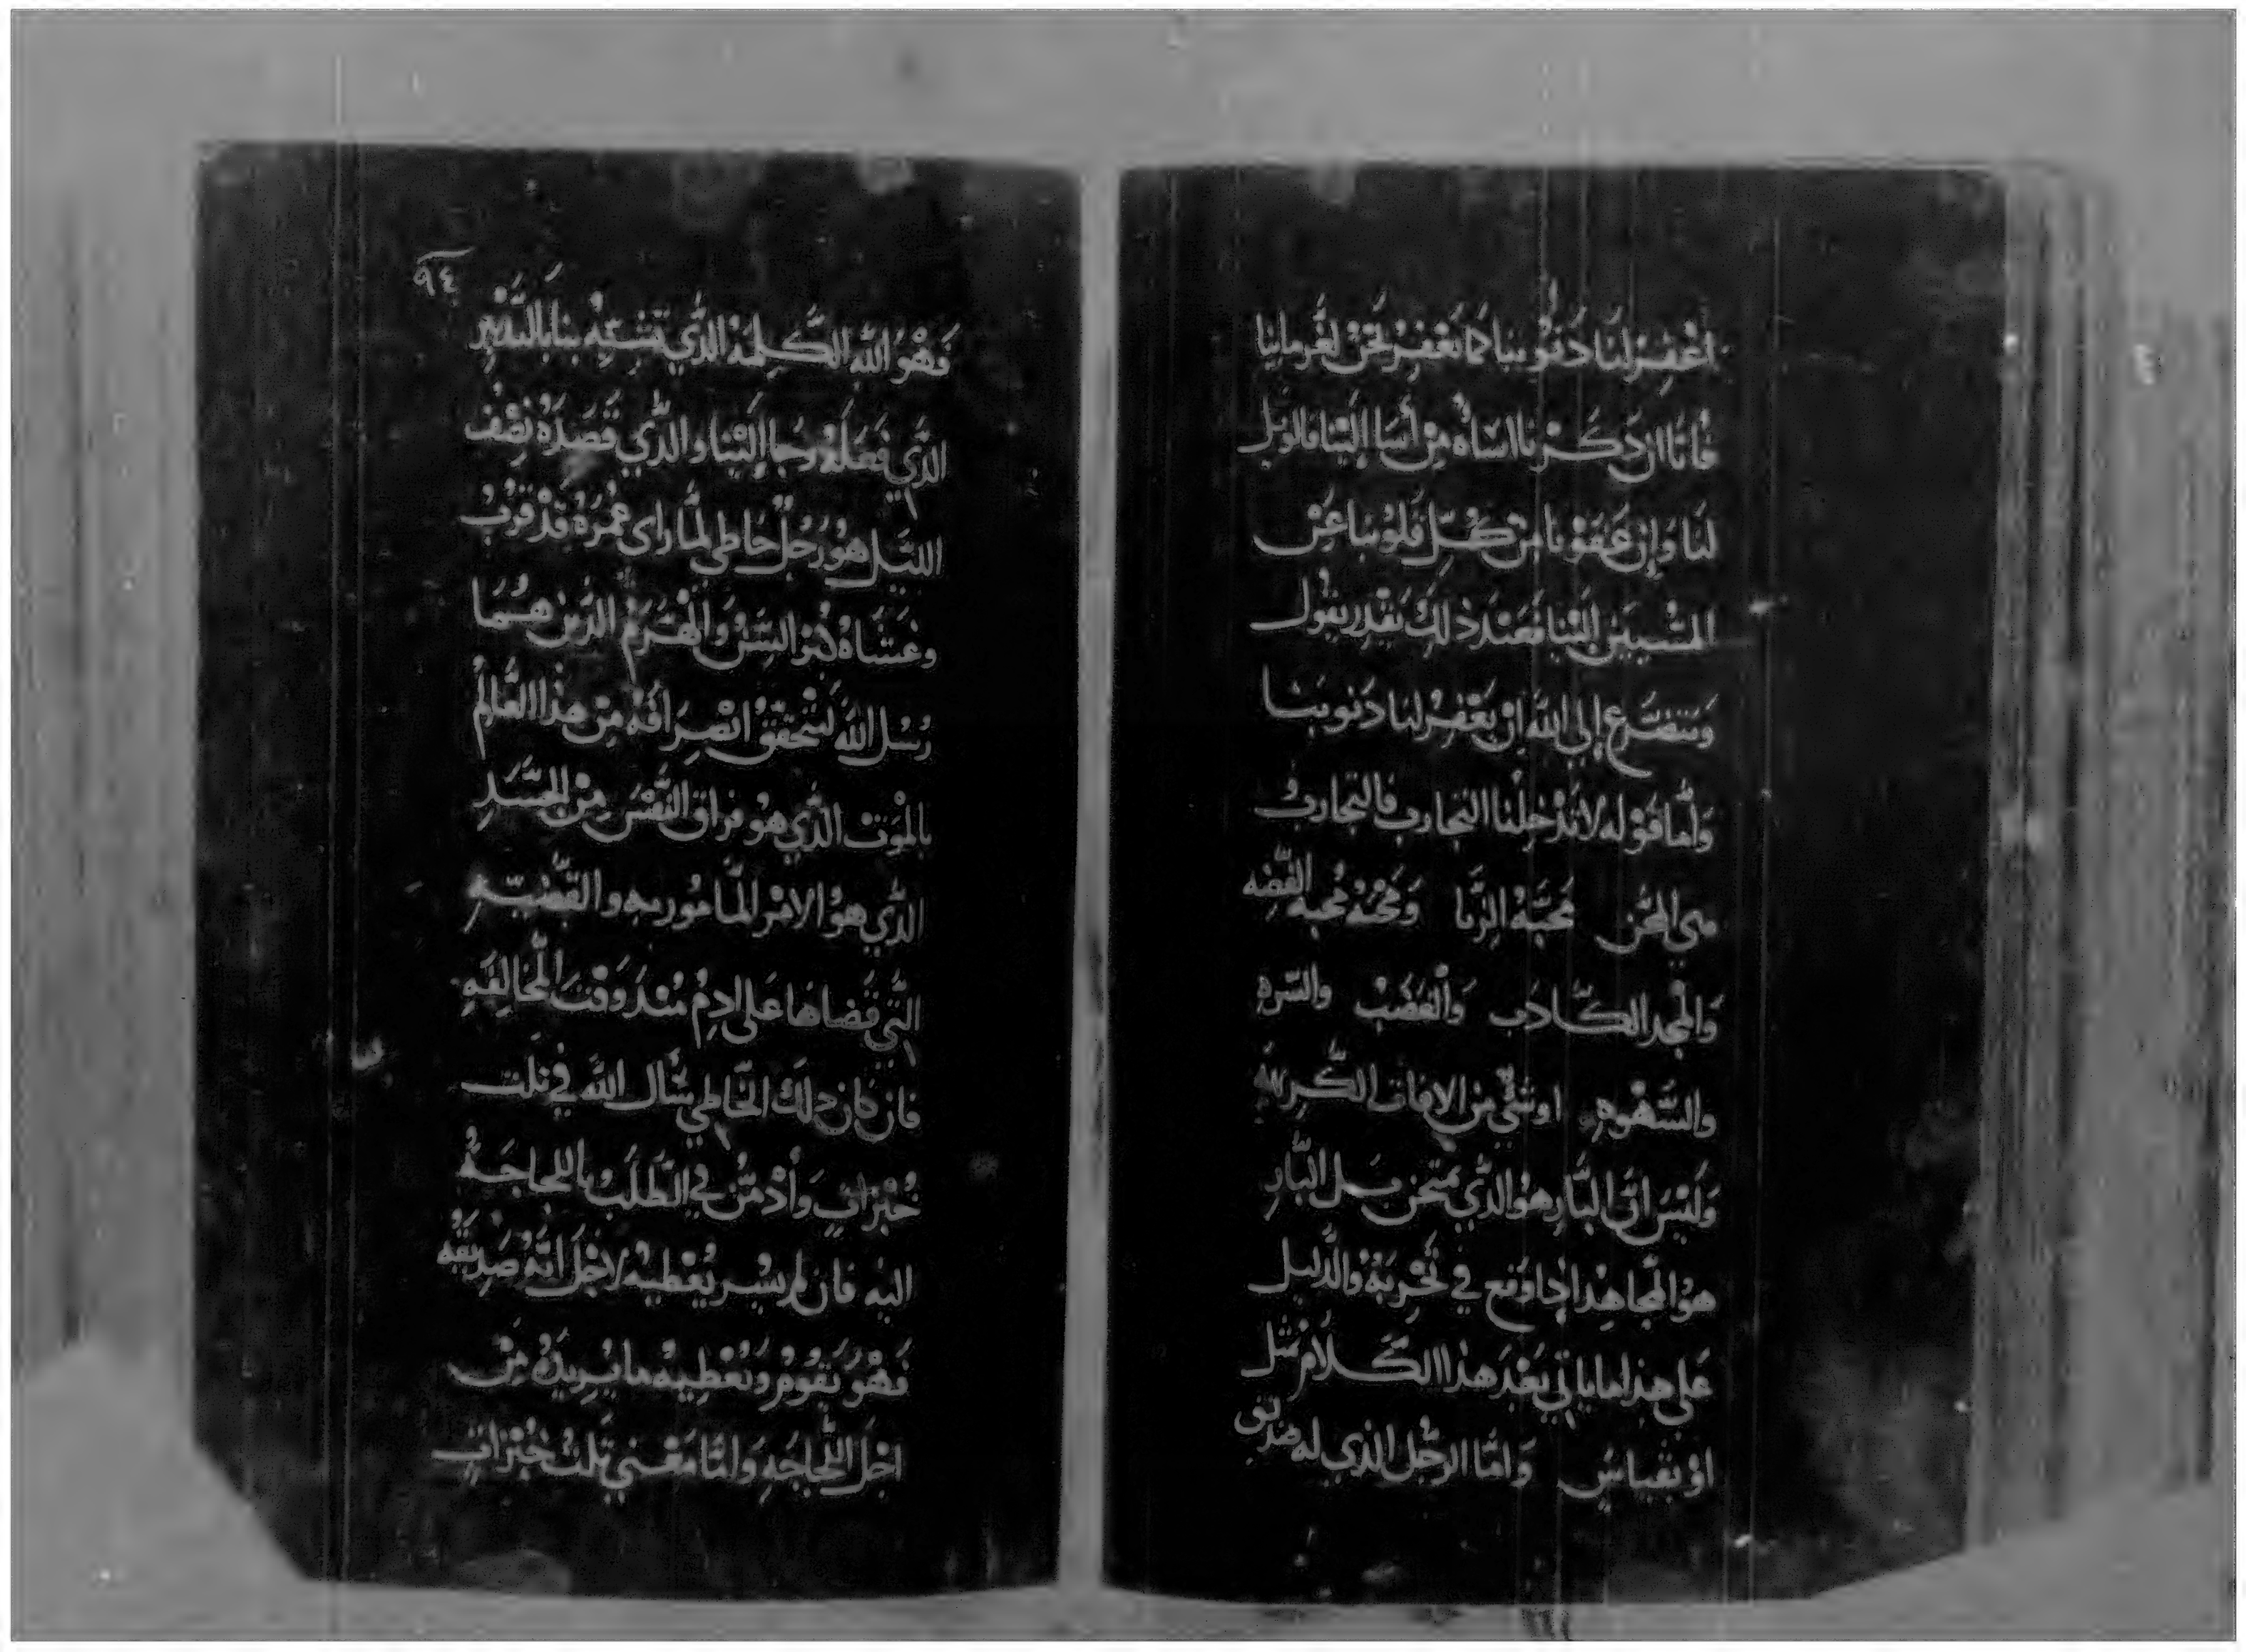 اغْفِرْلنَا دَنُوبنا كَما نَغْفِرْ نَحْنُ لغُرمَاينا
فأنا ان دَكَرْنا اسَاه مِنْ أسَا إليْنا فالوَيل
لنَا وَإن عَفَوْنا مِنْ كُلِّ قلوُبنا عَنِ
المُسْييَن الَيْنا فعَندَ ذلكَ نقدِر نقول
وَنتضَرع إلى الله انْ يَغْفِرْ لنا دَنوبنا
وَأما قوْله لا تدْخلنا التجارب فالتجاربُ
هي المحَن مَحَبَّةُ الزنا وَمحَبْة محبه الفضه
وَالمجد الكَّادَب وَالغَضَبْ والشره
والشَّهْوه او شَيْ من الافات الكريهه
وَليْسَ انَّ البَّارِ هوُ الذَّي يمتحن بل البَّارِ
هوُ المَّجاهِد اِدا وَقع في تَجْربَة والدَّليل
عَلى هذا ما ياتي بَعْدَ هَذا الكَلام مثل
اوْ بقياسُ وَامَّا الرجُل الذي له صَديق
٩٤
فهْوُ الله الكَلِمَهْ الذَّي نسْتَعِيْن بنا بالتَدْبير
الذَّي فعَلهُ وَجا إليْنا وَالذَّي قصَدَهُ نِصْف
الليَّل هوُ رَجُل خاطي لمَّا راى عُمْرَهُ قدْ قرُبْ
وغشَاهُ كبْر السَّنْ وَالهَرَمْ الذَين هُما
رُسُل الله لتحققُ انْصِرَافهْ مِنْ هذا العَّالمْ
بالمْوَت الذَّي هوُ فراق النَّفْسْ مِنْ الجَسَّدِ
الذَّي هوُ الامْر المَّاموُر بهِ والقَضْيّهِ
التَّي قضاها عَلى ادمُ مُنْدُ وَقت المُخَّالفَهِ
فان كان دلكَ الخَّاطي سَّال الله في تلت
خُبْزاتٍ وَأدْمَنْ في الطَلَبْ باللجاجَهُ
اليْه فان لم يسير يُعْطيهْ لاجْل أنَّهُ صَدِيقه
فهْوُ يَقوُمْ وَيُعْطِيهْ مَا يُريدَهُ مِنْ
اجْل اللَّجاجَهِ وَامَّا مَعْني تلتْ خبْزاتٍ